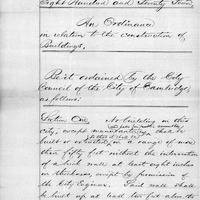 Eight Hundred and Seventy Four
An Ordinance
in relation to the construction of
Buildings.
Be it ordained by the City
Council of the City of Cambridge,
as follows:
Section One. No building in this
city, except manufactories shall be
built or extended, in a range of more
than fifty feet without the intervention
of a brick wall at least eight inches
in thickness, except by permission of
the City Engineer. Said wall shall
be built up at least two feet above the